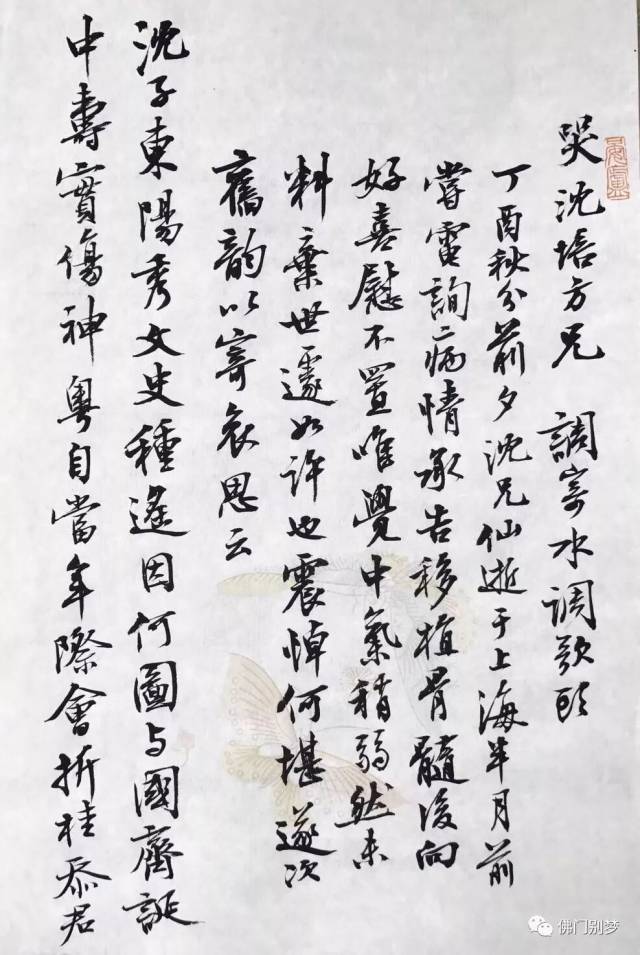 哭沈培方兄　調寄水调歌頭
丁酉秋分前夕沈兄仙逝于上海半月前
嘗電詢病情承告移植骨髓後向
好喜慰不置唯覺中氣稍弱然未
料棄世遽如許也震悼何堪遂次
舊韵以寄哀思云
沈子東陽秀文史種遙因何圖与國齊誕
中壽實傷神粤自當年際會折桂忝君
佛门别梦